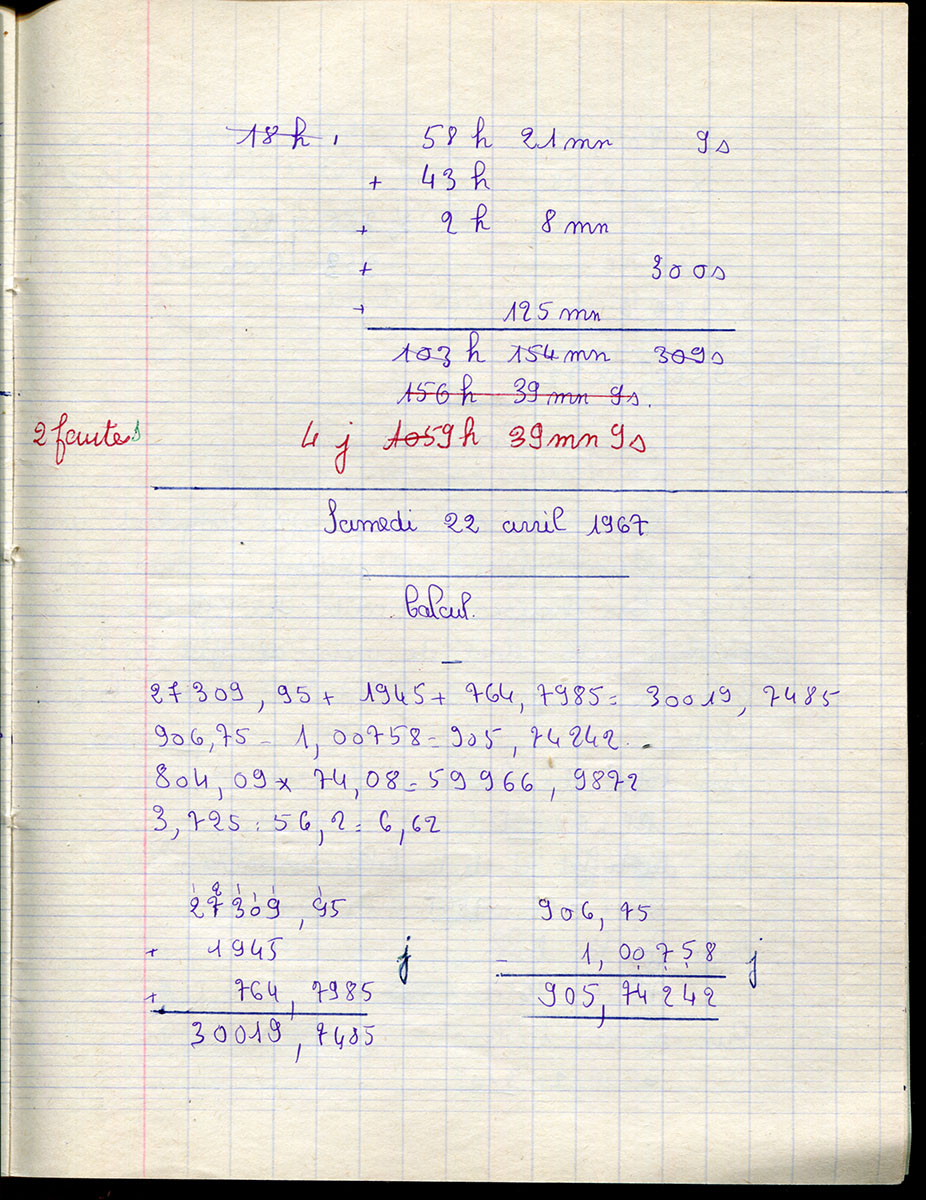 18 h , 58 h 21 mn 9 s
+ 43 h
+ 2 h 8 mn
+ 300 s
+ 125 mn
103 h 154 mn 309 s
156 h 39 mn 9 s.
2 fautes 4 j 1059 h 39 mn 9 s
Samedi 22 avril 1967
Calcul.
27 309, 95 + 1945 + 764, 7985 = 30019, 7485
906,75 - 1, 00758 = 905, 74242.
804, 09 x 74, 08 = 59 966, 9872
3, 725 : 56, 2 = 6, 62
1 2 1 1 1
27309, 95 906, 75
+ 1945 j - 1, 00758 j
+ 764, 7985 905, 74242
30019, 7485